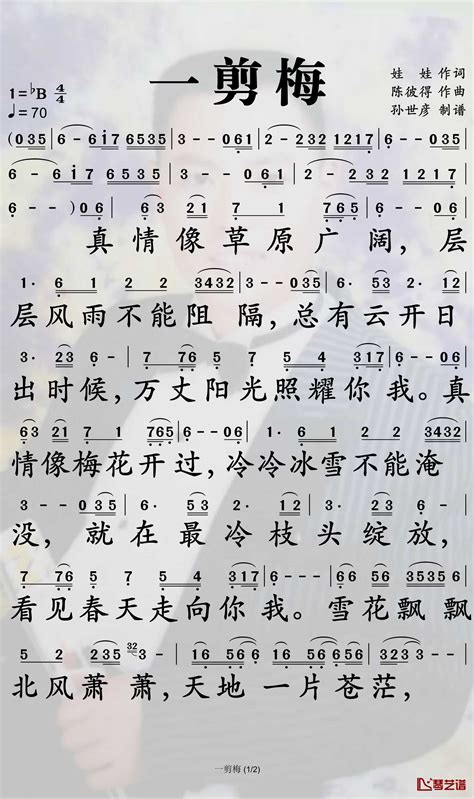 一剪梅
1=♭B 4/4
♩=70
娃 娃 作词
陈彼得 作曲
孙世彦 制谱
(035 | 6 - 6i76535 | 3 - - 061 | 2 - 232 1217 |
6 - 6i76535 | 3 - - 061 | 2 - 232 1217 |
6 - - )06 | 63 217 1 | 7 765 6 - | 6 - - 06 |
真情像草原广阔，层
1· 6 1 2 | 2 - - 3432 | 3 - - 03 | 6· 1 4 3 |
层风雨不能阻 隔，总有云开日
3· 23 6 - | 7 76 5 6 | 7 5 4 317 | 6 - - 06 |
出时候，万丈阳光照耀你我。真
63 217 1 | 7 765 6 - | 6 - - 06 | 1· 6 1 2 | 2 - - 3432 |
情像梅花开过，冷冷冰雪不能淹
3 - - 03 | 6· 1 4 3 | 3· 23 6 - |
没，就在最冷枝头绽放，
7 76 5 6 | 7 5 4 317 | 6 - - - | 3 56 5535 6 |
看见春天走向你我。雪花飘飘
1· 2 3 23 - | 1 16 56 - | 1 16 5 656 | 3 - - - |
北风萧 萧，天地 一片苍茫，
一剪梅 (1/2)
琴艺谱